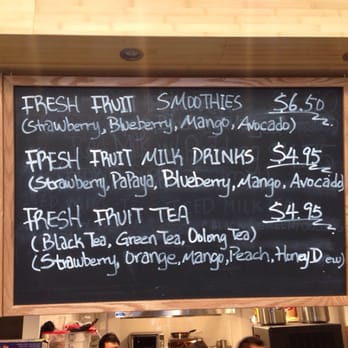 FRESH FRUIT SMOOTHIES $6.50
(Strawberry, Blueberry, Mango, Avocado)
FRESH FRUIT MILK DRINKS $4.95
(Strawberry, PaPaya, Blueberry, Mango, Avocado)
FRESH FRUIT TEA $4.95
(Black Tea, Green Tea, Oolong Tea)
(Strawberry, Orange, Mango, Peach, Honey Dew)